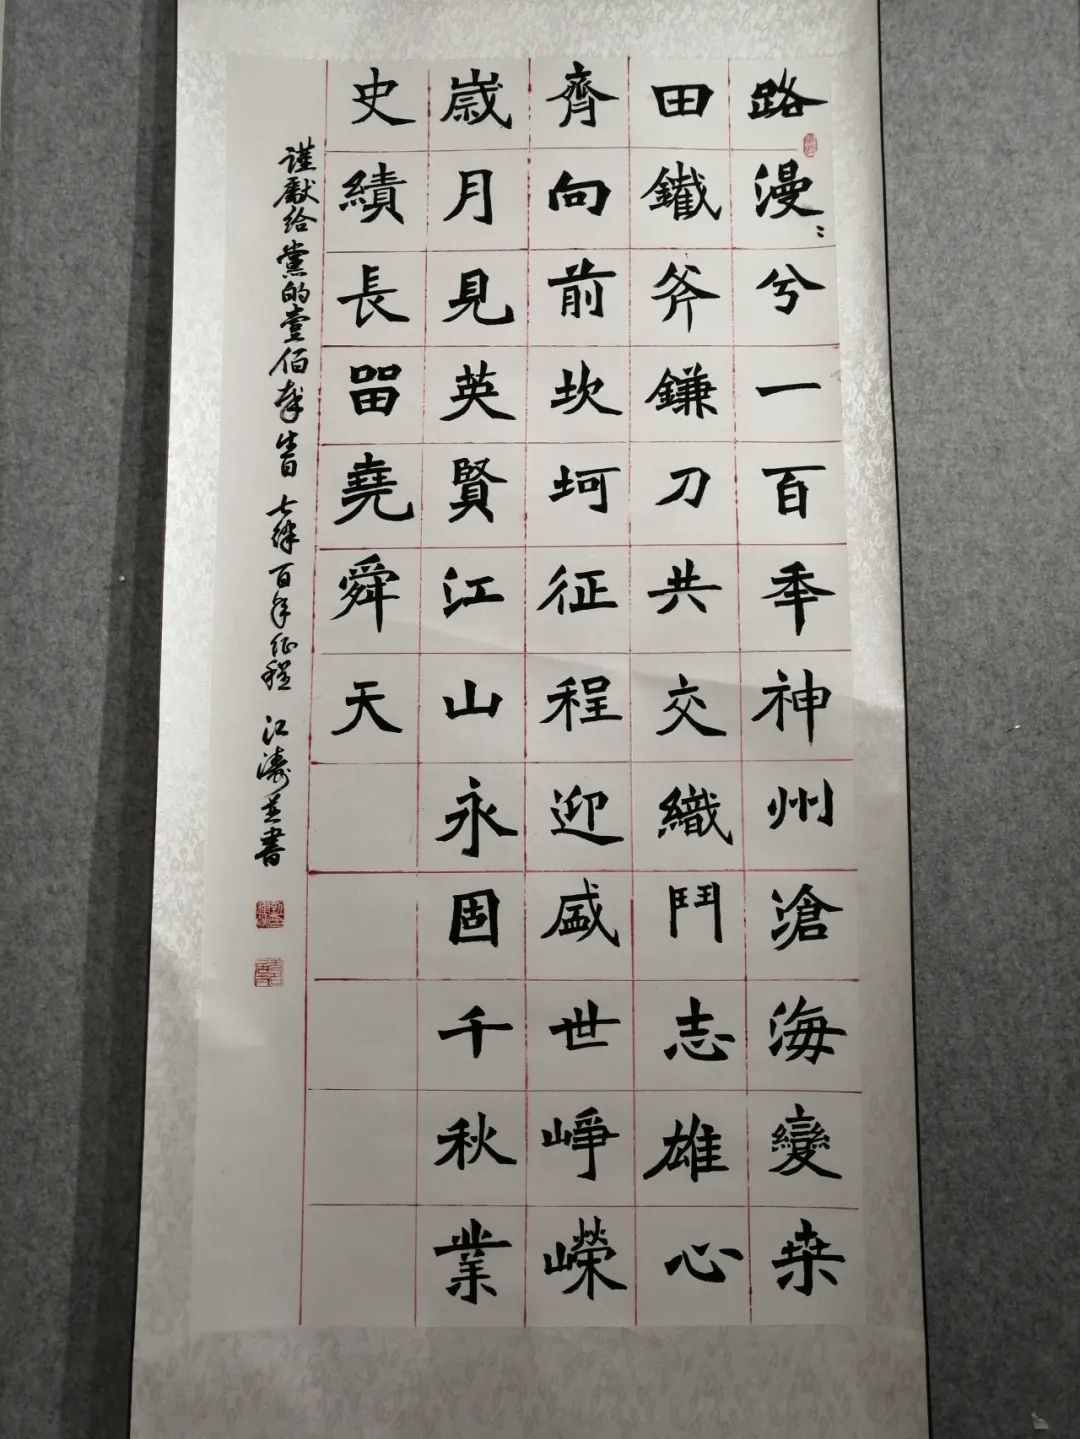 路漫〻兮一百秊神州滄海變桒
田鐵斧鎌刀共交織鬥志雄心
齊向前坎坷征程迎盛世崢嶸
歲月見英賢江山永固千秋業
史績長畱堯舜天
謹獻給黨的壹佰年生日 七律百年征程 江濤並書